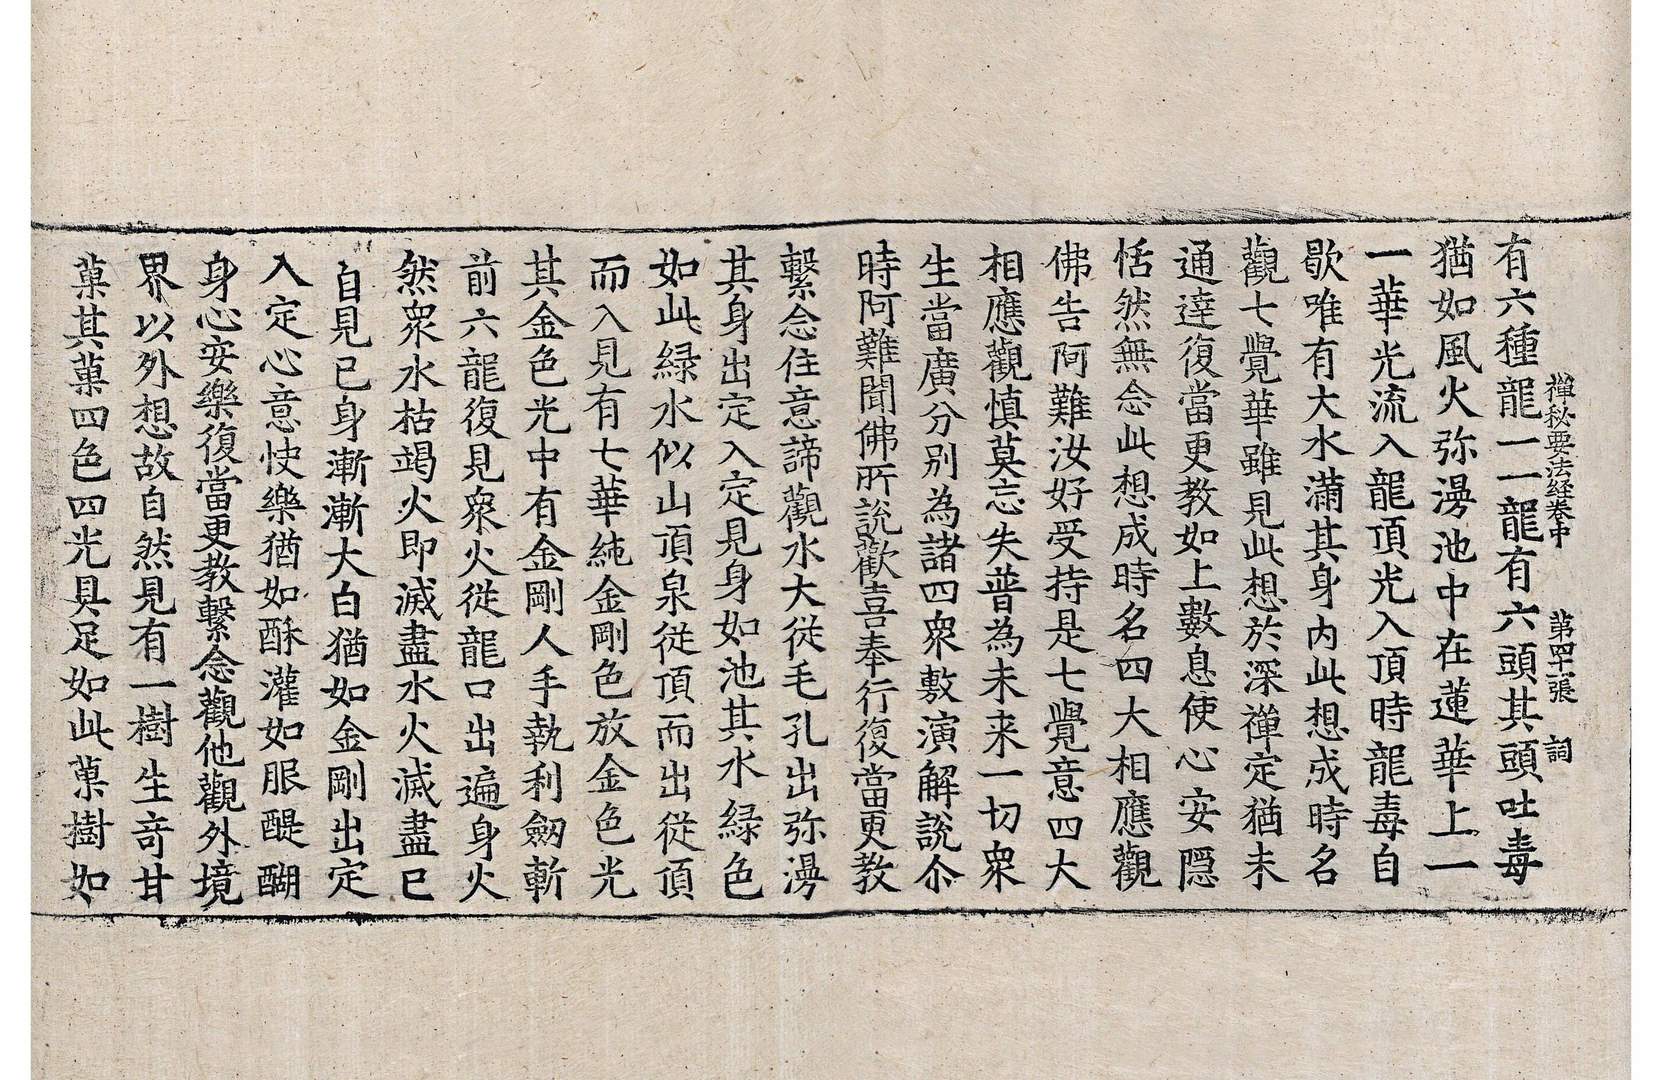 禪秘要法経卷中　第四十一張　詞
有六種龍一一龍有六頭其頭吐毒
猶如風火弥漫池中在蓮華上一
一華光流入龍頂光入頂時龍毒自
歇唯有大水滿其身内此想成時名
觀七覺華雖見此想於深禪定猶未
通達復當更教如上數息使心安隱
恬然無念此想成時名四大相應觀
佛告阿難汝好受持是七覺意四大
相應觀慎莫忘失普為未来一切衆
生當廣分別為諸四衆敷演解說尒
時阿難聞佛所說歡喜奉行復當更教
繫念住意諦觀水大從毛孔出弥漫
其身出定入定見身如池其水緑色
如此緑水似山頂泉從頂而出從頂
而入見有七華純金剛色放金色光
其金色光中有金剛人手執利劒斬
前六龍復見衆火從龍口出遍身火
然衆水枯竭火即滅盡水火滅盡已
自見已身漸漸大白猶如金剛出定
入定心意快樂猶如酥灌如服醍醐
身心安樂復當更教繫念觀他觀外境
界以外想故自然見有一樹生竒甘
菓其菓四色四光具足如此菓樹如